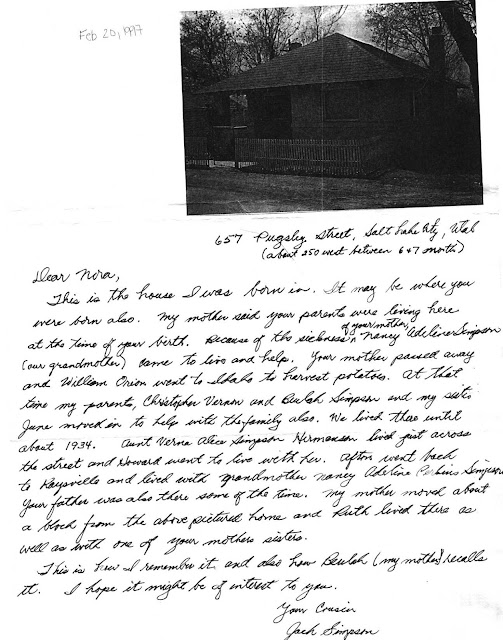 Feb 20, 1997
657 Pugsley Street, Salt Lake City, Utah
(about 250 west between 6 & 7 north)
Dear Nora,
This is the house I was born in. It may be where you
were born also. My mother said your parents were living here
at the time of your birth. Because of the sickness of your mother, Nancy Adeline Simpson
(our grandmother) came to live and help. Your mother passed away
and William Orion went to Idaho to harvest potatoes. At that
time my parents, Christopher Vernon and Beulah Simpson and my sister
June moved in to help with the family also. We lived there until
about 1934. Aunt Verna Alice Simpson Hermansen lived just across
the street and Howard went to live with her. Afton went back
to Kaysville and lived with grandmother Nancy Adeline Perkins Simpson
Your father was also there some of the time. My mother moved about
a block from the above pictured home and Ruth lived there as
well as with one of your mothers sisters.
This is how I remember it and also how Beulah (my mother) recalls
it. I hope it might be of interest to you.
Your Cousin
Jack Simpson